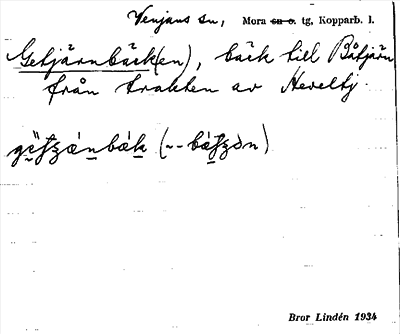 Venjans sn, Mora sn o. tg, Kopparb. l.
Getjärnbäck(en), bäck till Båtjärn
från trakten av Heveltj.
Bror Lindén 1934